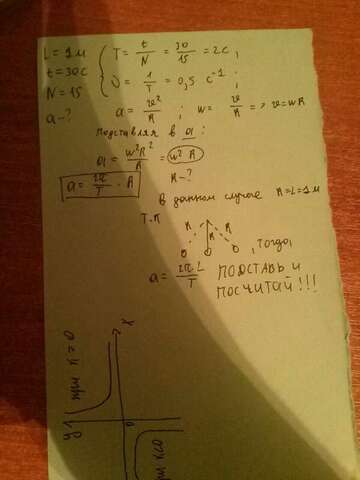 L = 1м
t = 30с
N = 15
a - ?
T = t/N = 30/15 = 2с ;
ν = 1/T = 0,5 с⁻¹ ;
a = v²/R ; w = v/R => v = wR
подставляя в a :
a = w²R²/R = w² R
a = 2π/T · R
R - ?
в данном случае R = L = 1м
т.к
R R R
, тогда,
a = 2π L/T
ПОДСТАВЬ И
ПОСЧИТАЙ!!!
X
y
0
при k
при k<0